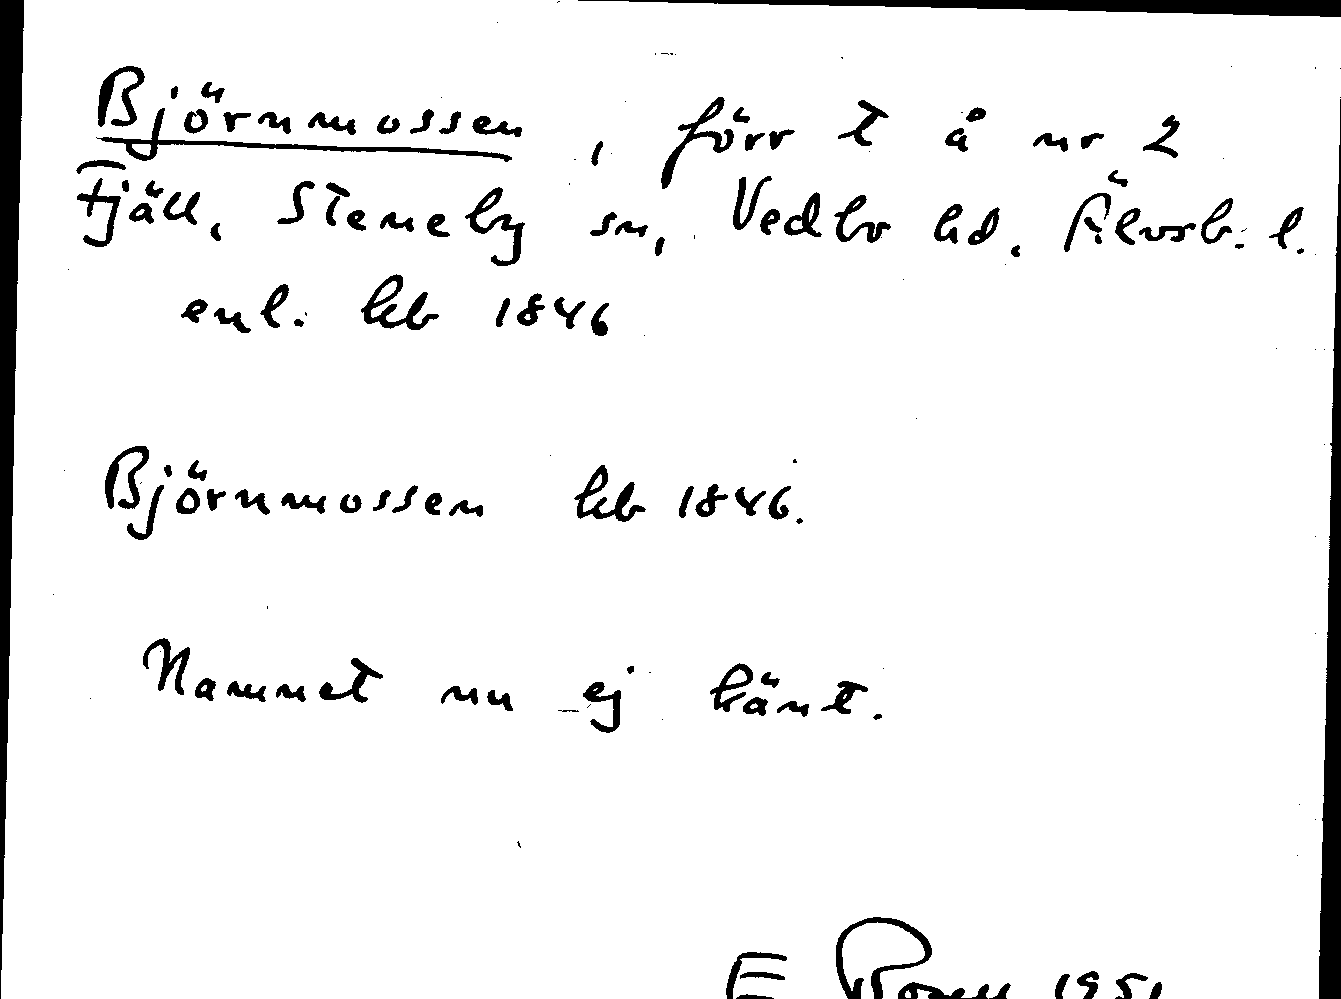 Björnmossen, förr t å nr 2
Fjäll, Steneby sn, Vedbo hd, Älvsb. l.
enl. kb 1846
Björnmossen kb 1846.
Namnet nu ej känt.
E 1951